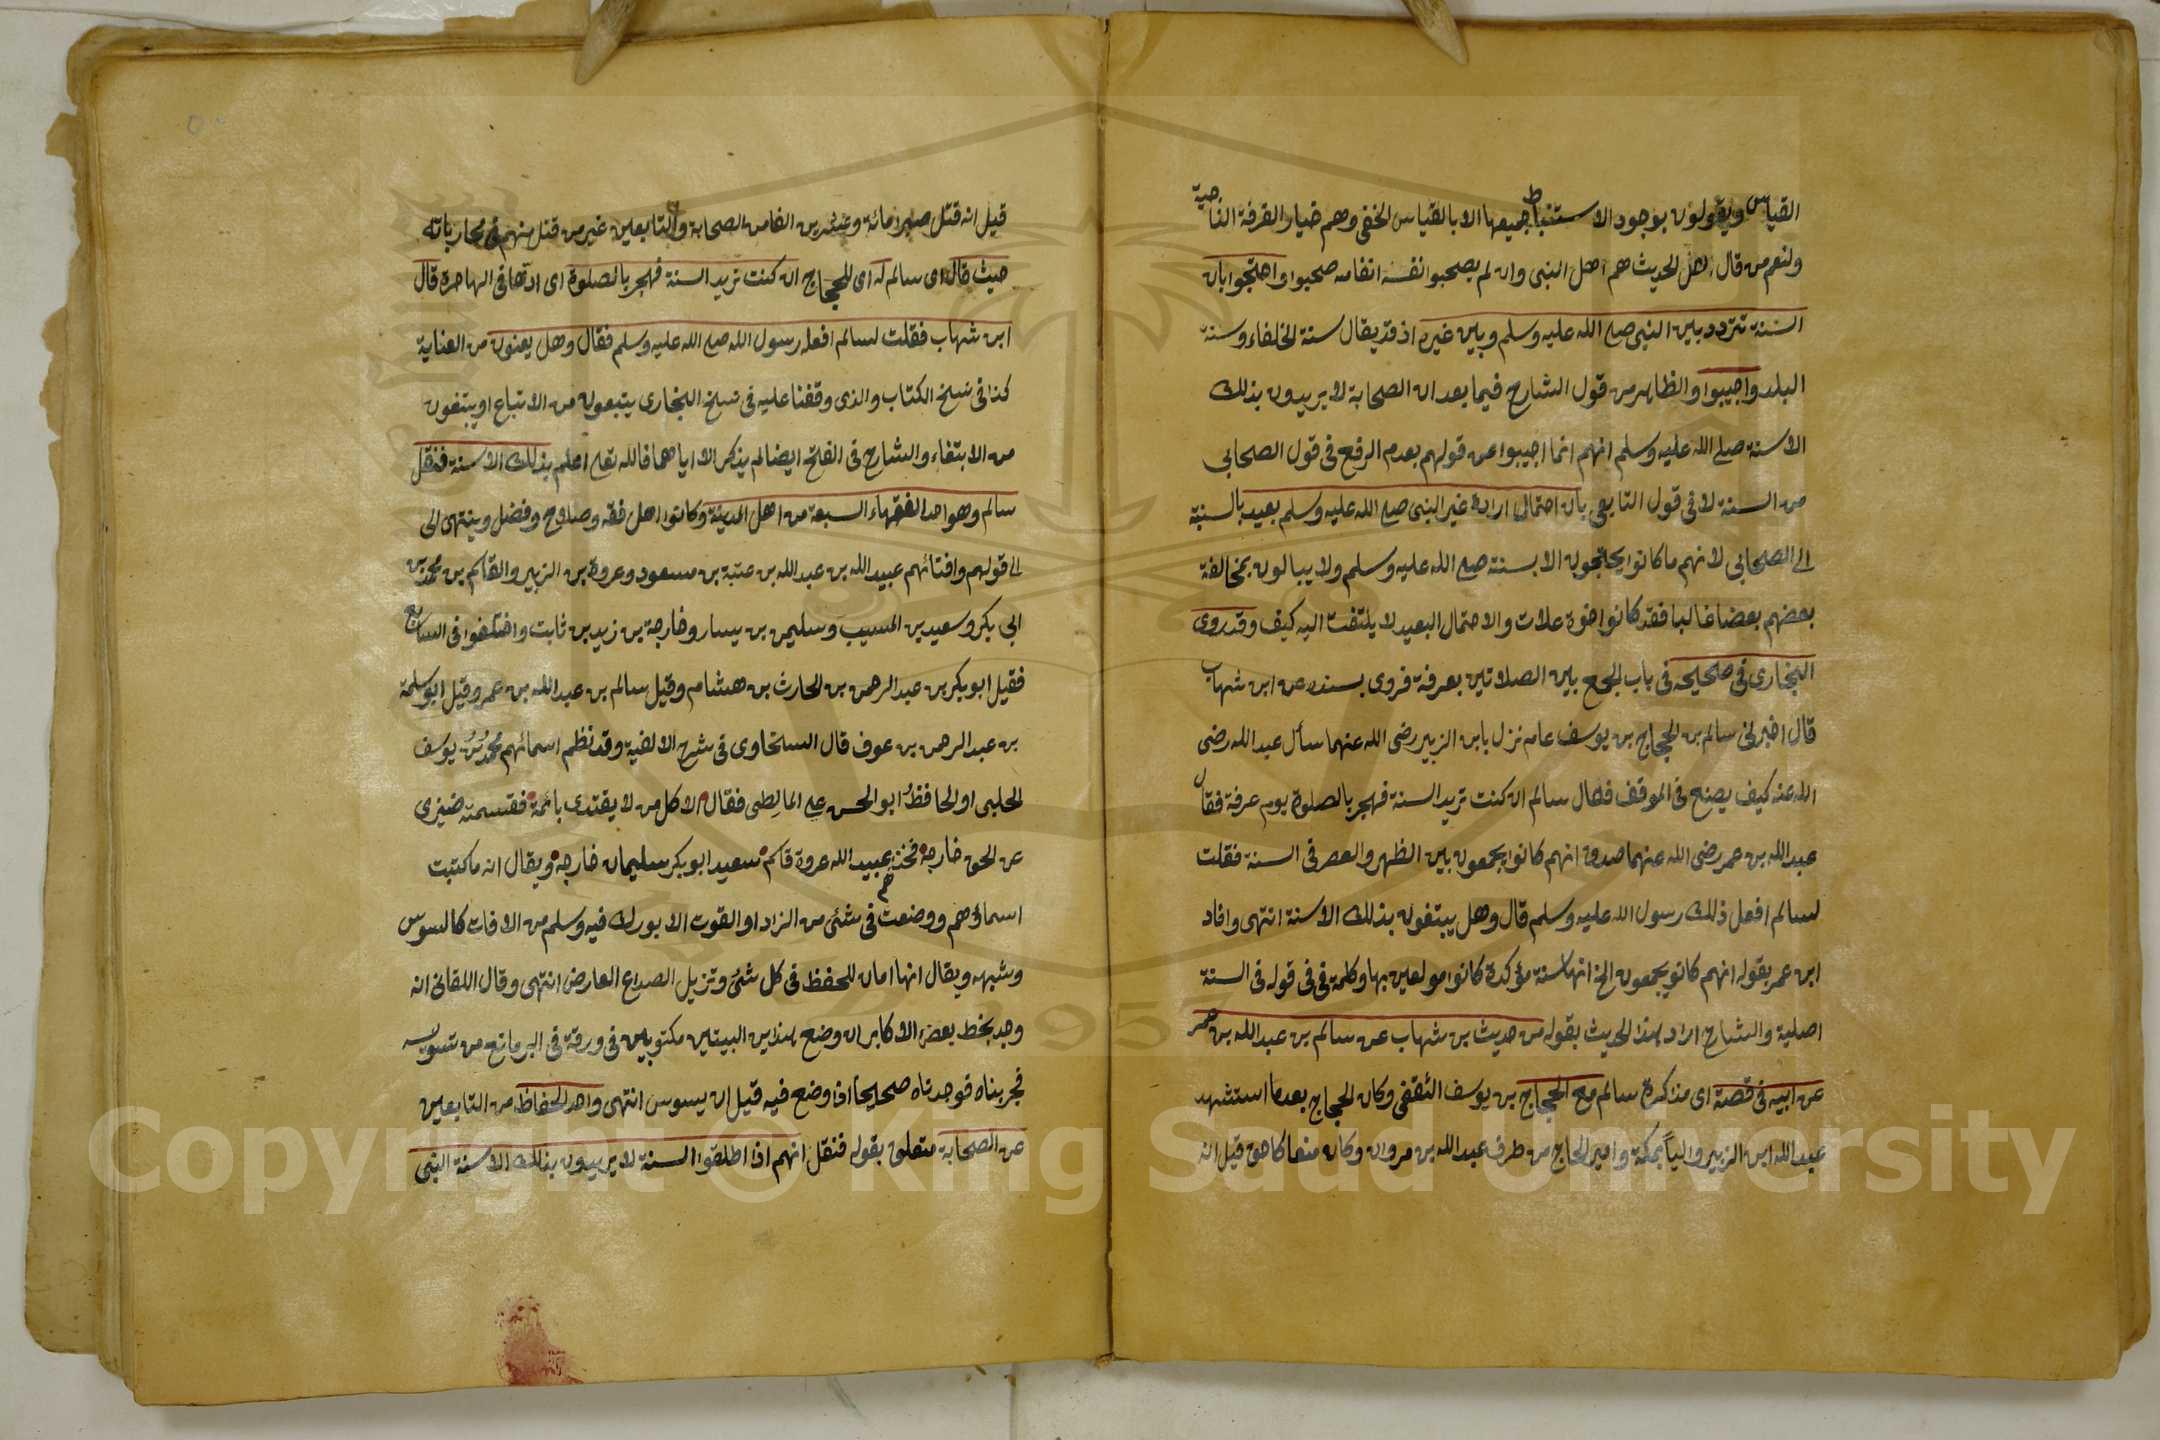 القياس ويقولون بوجود الاستنباط جميعها الا بالقياس الخفي وهم خيار الفرقة الناجية
ولنعم من قال اهل الحديث هم اهل النبي وان لم يصحبوا نفسه انفاسه صحبوا واحتجوا بان
السنة تتردد بين النبي صلى الله عليه وسلم وبين غيره اذ قد يقال سنة الخلفاء وسنة
البلد واجيبوا والظاهر من قول الشارح فيما بعد ان الصحابة لا يريدون بذلك
الا سنة صلى الله عليه وسلم انهم انما اجيبوا عن قولهم بعدم الرفع في قول الصحابي
من السنة لا في قول التابعي بان احتمال ارادة غير النبي صلى الله عليه وسلم بعيد بالنسبة
الى الصحابي لانهم ما كانوا يحتجون الا بسنته صلى الله عليه وسلم ولا يبالون بمخالفة
بعضهم بعضا غالبا فقد كانوا اخوة علات والاحتمال البعيد لا يلتفت اليه كيف وقد روى
البخاري في صحيحه في باب الجمع بين الصلاتين بعرفة فروى بسنده عن ابن شهاب
قال اخبرني سالم بن الحجاج بن يوسف عام نزل بابن الزبير رضي الله عنهما سأل عبد الله رضي
الله عنه كيف يصنع في الموقف فقال سالم ان كنت تريد السنة فهجر بالصلوة يوم عرفة فقال
عبد الله بن عمر رضي الله عنهما صدق انهم كانوا يجمعون بين الظهر والعصر في السنة فقلت
لسالم افعل ذلك رسول الله عليه وسلم قال وهل يبتغون بذلك الا سنة انتهى وافاد
ابن عمر بقوله انهم كانو يجمعون الخ انها سنة مؤكدة كانوا مولعين بها وكلمة في في قوله في السنة
اصلية والشارح اراد بهذا الحديث بقوله من حديث بن شهاب عن سالم بن عبد الله بن عمر
عن ابيه في قصة اي مذاكرة سالم مع الحجاج بن يوسف الثقفي وكان الحجاج بعدما استشهد
عبد الله ابن الزبير واليا بمكة وامير الحاج من طرف عبد الله بن مروان وكان كما هو قيل انه
قيل انه قتل صبرا مائة وعشرين الفا من الصحابة والتابعين غير من قتل منهم في محارباته
حيث قال اي سالم له اي للحجاج ان كنت تريد السنة فهجر بالصلوة اي ادها في الهاجرة قال
ابن شهاب فقلت لسالم افعله رسول الله صلى الله عليه وسلم فقال وهل يعنون من العناية
كذا في نسخ الكتاب والذي وقفنا عليه في نسخ البخاري يتبعون من الاتباع او يبتغون
من الابتغاء والشارح في الفتح ايضا لم يذكر الا اياهما فالله تعالى اعلم بذلك الا سنة فنقل
سالم وهو احد الفقهاء السبعة من اهل المدينة وكانوا اهل فقه وصلاح وفضل وينتهى الى
الى قولهم وافتائهم عبيد الله بن عبد الله بن عتبة بن مسعود وعروة بن الزبير والقاسم بن محمد بن
ابي بكر وسعيد بن المسيب وسليمن بن يسار وخارجة بن زيد بن ثابت واختلفوا في السابع
فقيل ابو بكر بن عبد الرحمن بن الحارث بن هشام وقيل سالم بن عبد الله بن عمر وقيل ابو سلمة
بن عبد الرحمن بن عوف قال السخاوى في شرح الالفية وقد نظم اسمائهم محمد بن يوسف
الحلبي او الحافظ ابو الحسن على المالطي فقال الا كل من لا يقتدى بائمة فقسمته ضيزى
عن الحق خارجة فخذهم عبيد الله عروة قاسم سعيد ابو بكر سليمان خارجة ويقال انه ما كتبت
اسماؤهم ووضعت في شئ من الزاد او القوت الا بورك فيه وسلم من الافات كالسوس
وشبهه ويقال انها امان للحفظ في كل شئ وتزيل الصداع العارض انتهى وقال اللقاني انه
وجد بخط بعض الاكابر ان وضع هذين البيتين مكتوبين في ورقة في البر مانع من تسويسه
فجربناه فوجدناه صحيحا اذا وضع فيه قبل ان يسوس انتهى واحد الحفاظ من التابعين
عن الصحابة متعلق بقوله فنقل انهم اذا اطلقوا السنة لا يريدون بذلك الا سنة النبي
Copyright © King Saud University
1957